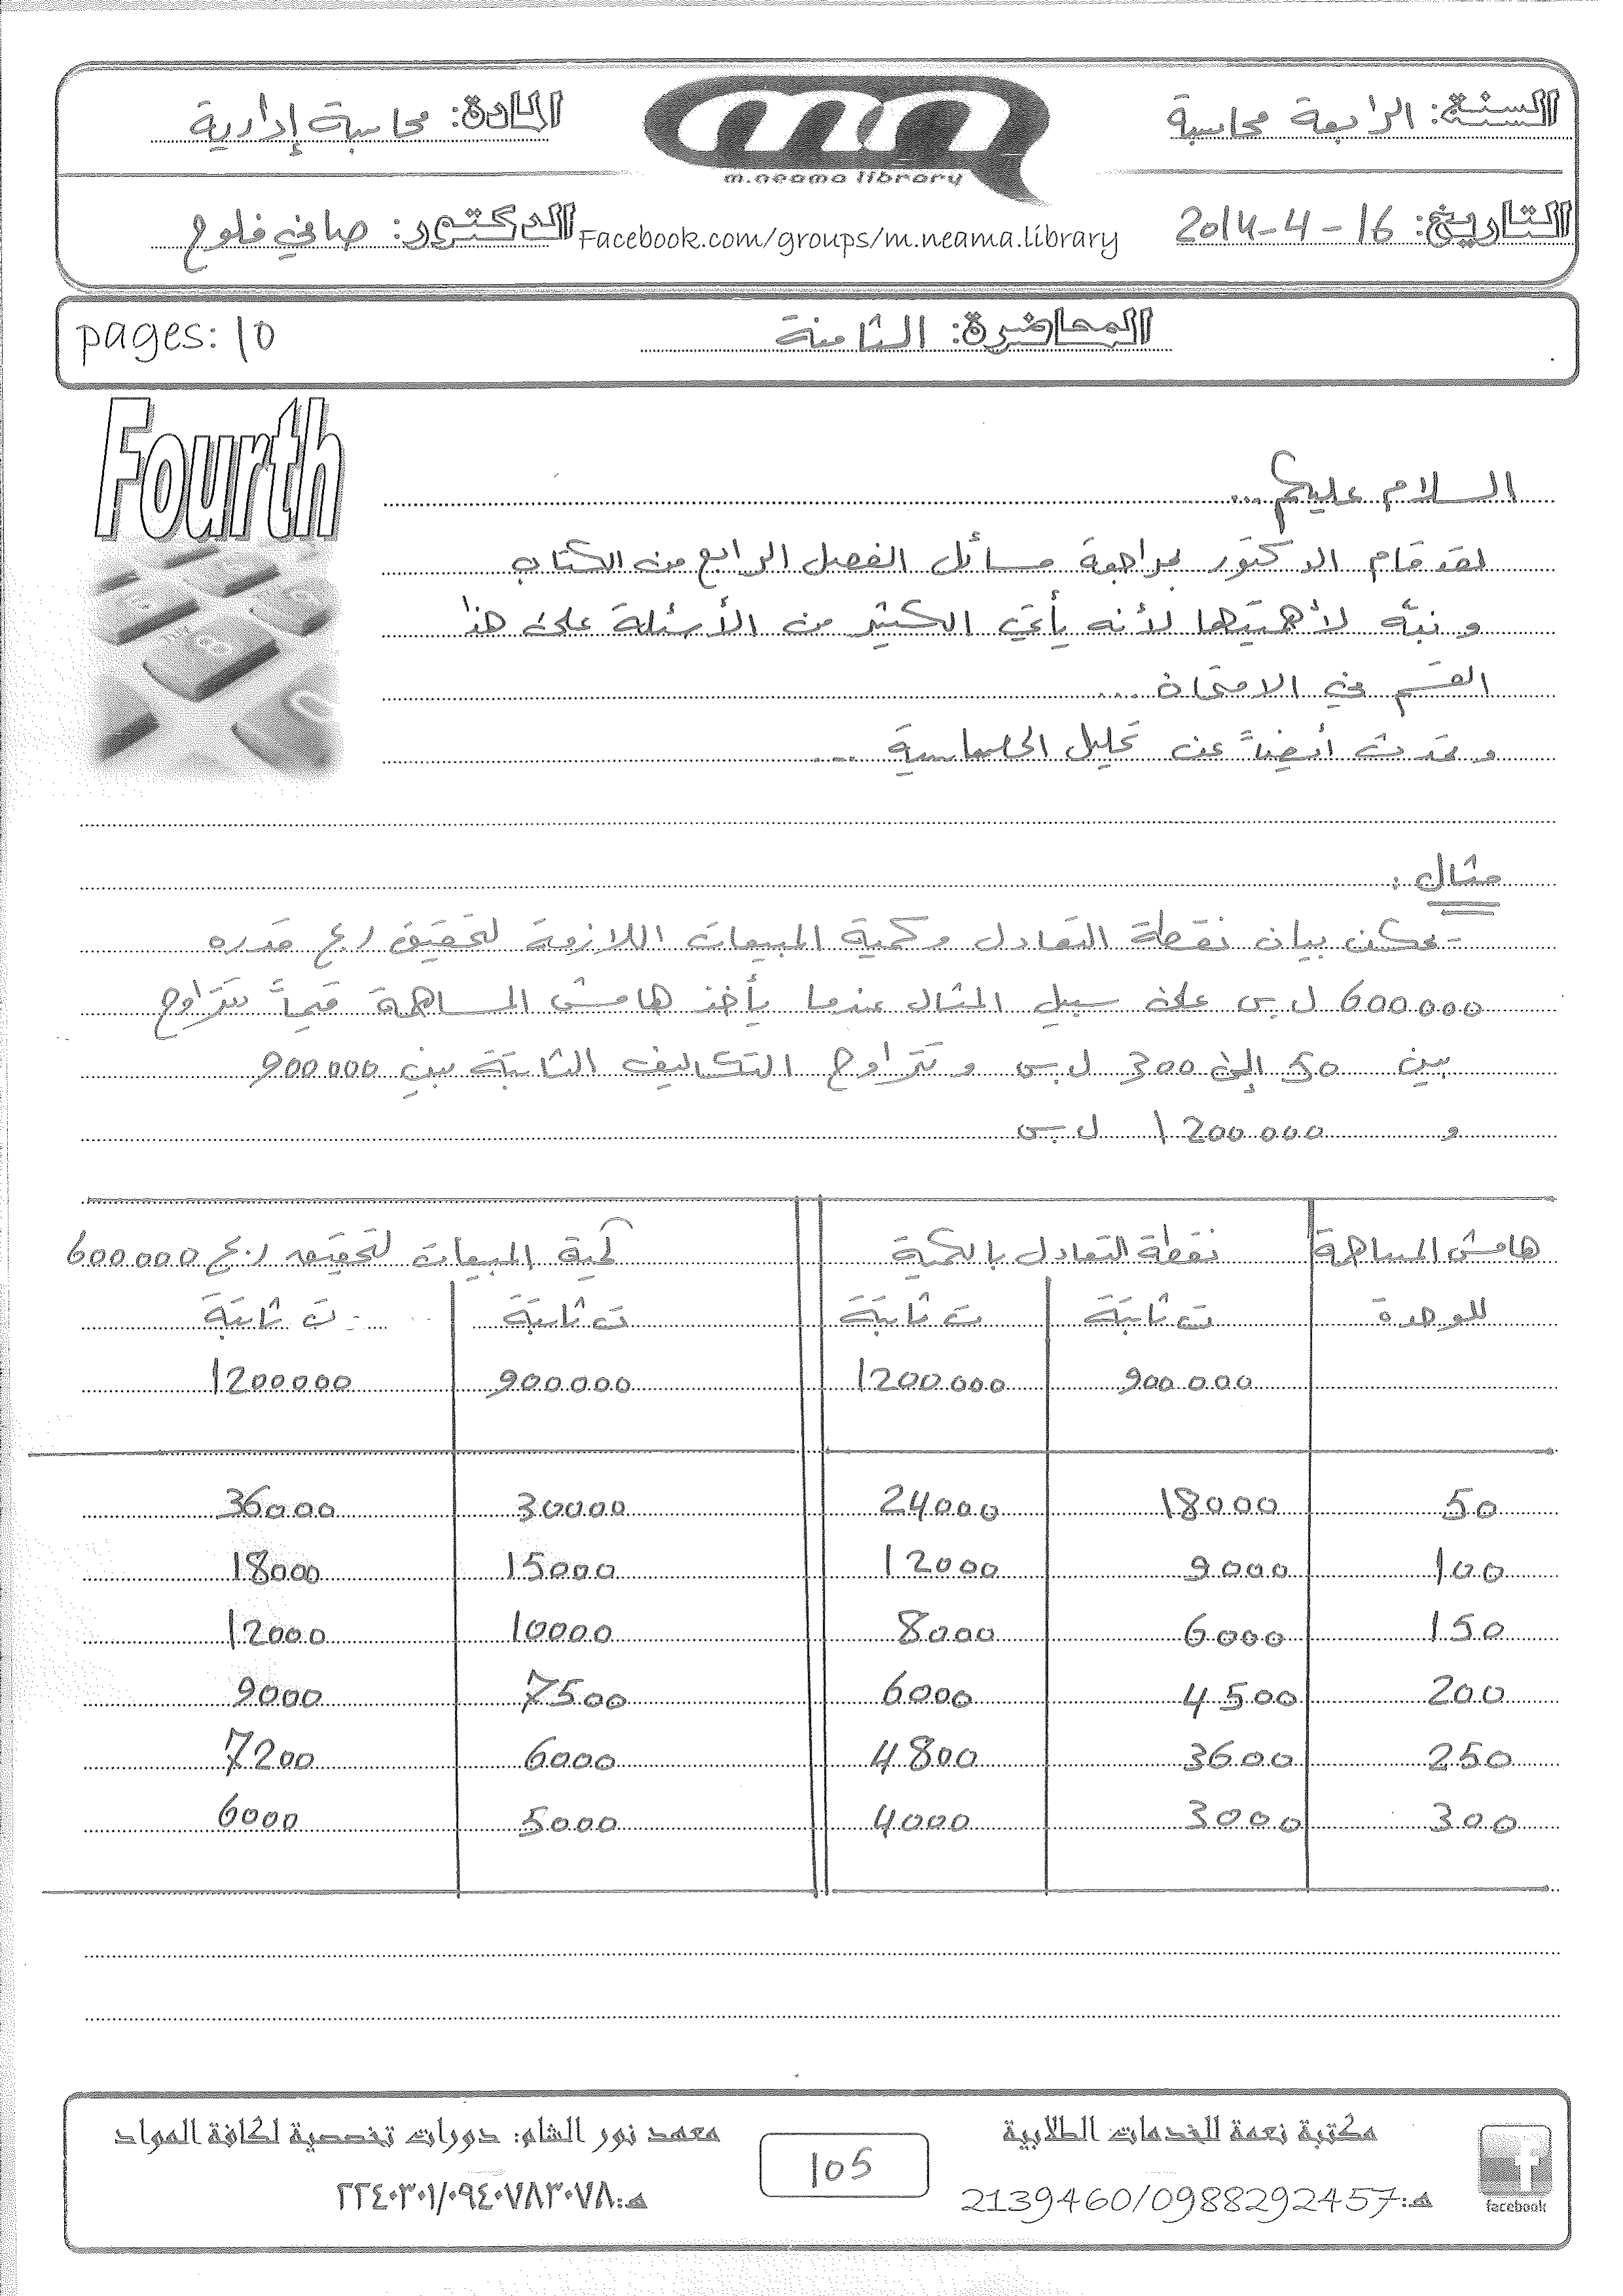 السنة: الرابعة محاسبة
المادة: محاسبة إدارية
m.neama library
التاريخ: 16-4-2014
Facebook.com/groups/m.neama.library
الدكتور: صافي فلوح
المحاضرة: الثامنة
pages: 10
Fourth
السلام عليكم...
لقد قام الدكتور بمراجعة مسائل الفصل الرابع من الكتاب
و نبّه لأهميتها لأنه يأتي الكثير من الأسئلة على هذا
القسم في الامتحان ...
و تحدث أيضاً عن تحليل الحساسية ...
مثال:
- يمكن بيان نقطة التعادل وكمية المبيعات اللازمة لتحقيق ربح قدره
600000 ل.س على سبيل المثال عندما يأخذ هامش المساهمة قيماً تتراوح
بين 50 إلى 300 ل.س و تتراوح التكاليف الثابتة بين 900000
و 1200000 ل.س
هامش المساهمة نقطة التعادل بالكمية كمية المبيعات لتحقيق ربح 600000
للوحدة ت ثابتة ت ثابتة ت ثابتة ت ثابتة
900000 1200000 900000 1200000
50 18000 24000 30000 36000
100 9000 12000 15000 18000
150 6000 8000 10000 12000
200 4500 6000 7500 9000
250 3600 4800 6000 7200
300 3000 4000 5000 6000
مكتبة نعمة للخدمات الطلابية
هـ: 2139460/0988292457
facebook
105
معهد نور الشام: دورات تخصصية لكافة المواد
هـ: ٢٢٤٠٣٠١/٠٩٤٠٧٨٣٠٧٨